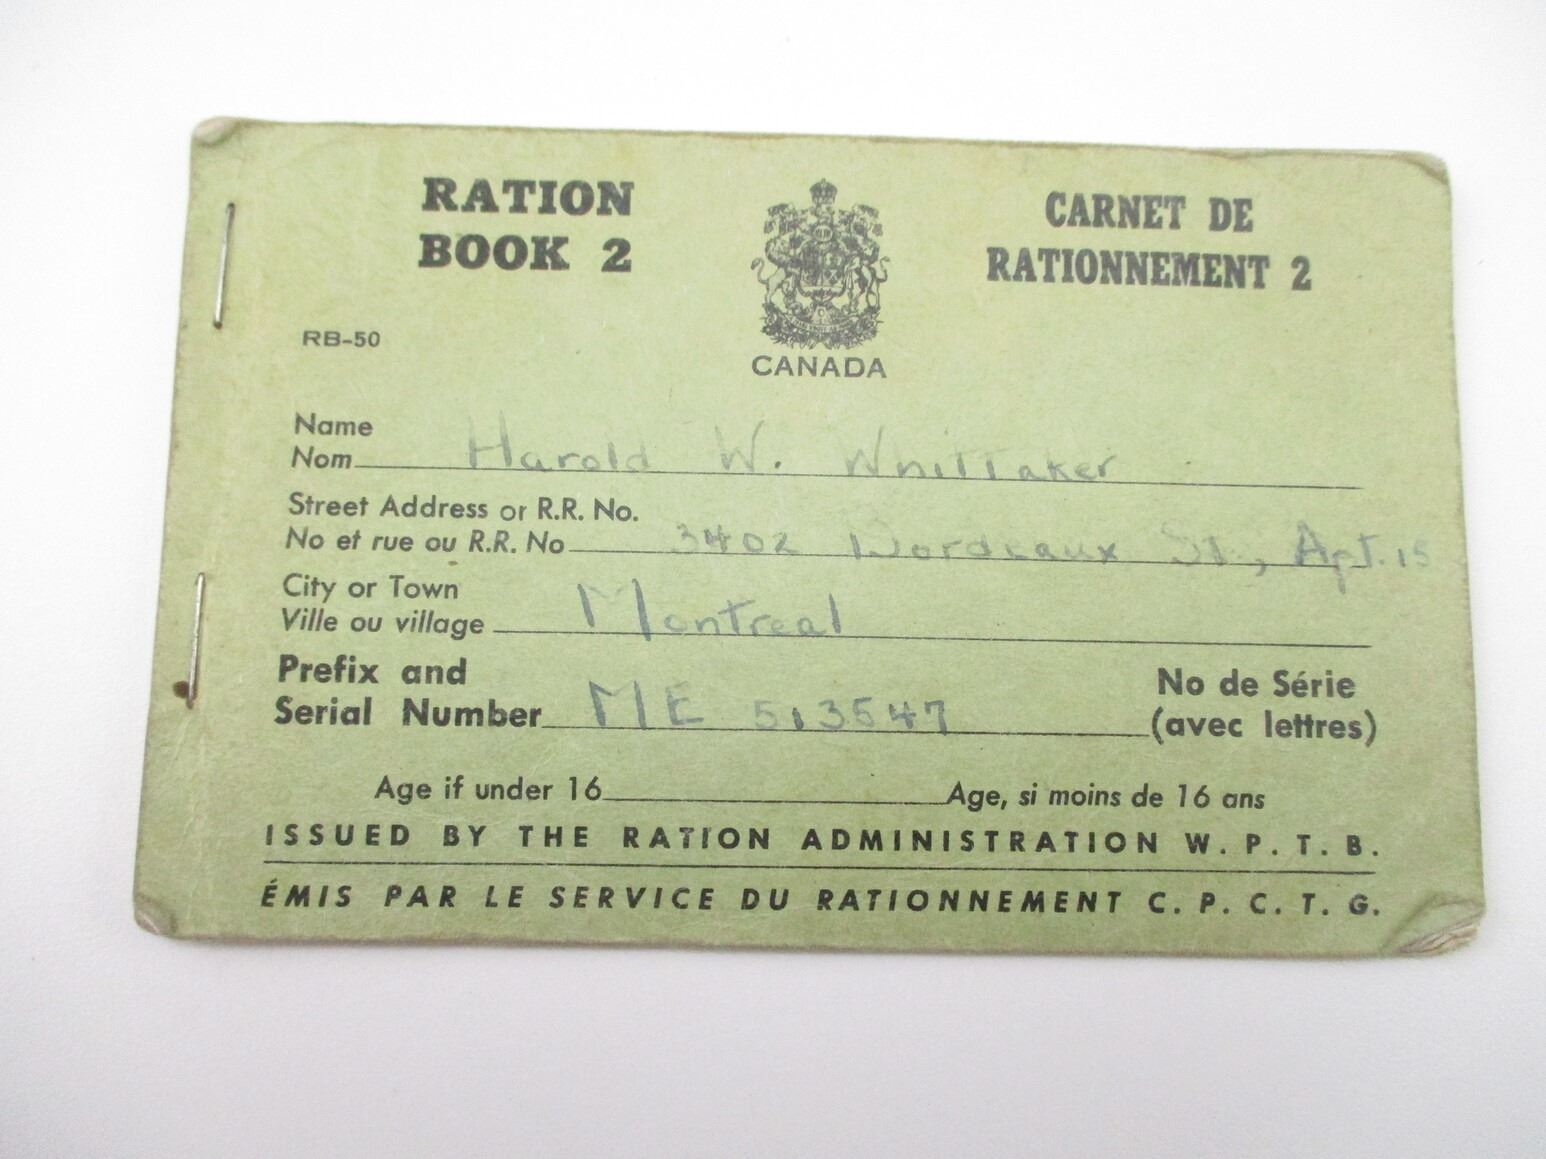 RATION
BOOK 2
CARNET DE
RATIONNEMENT 2
RB-50
CANADA
Name
Nom Harold W. Whittaker
Street Address or R.R. No.
No et rue ou R.R. No 3402 Bordeaux St., Apt. 15
City or Town
Ville ou village Montreal
Prefix and
Serial Number ME 513547
No de Série
(avec lettres)
Age if under 16 Age, si moins de 16 ans
ISSUED BY THE RATION ADMINISTRATION W. P. T. B.
ÉMIS PAR LE SERVICE DU RATIONNEMENT C. P. C. T. G.